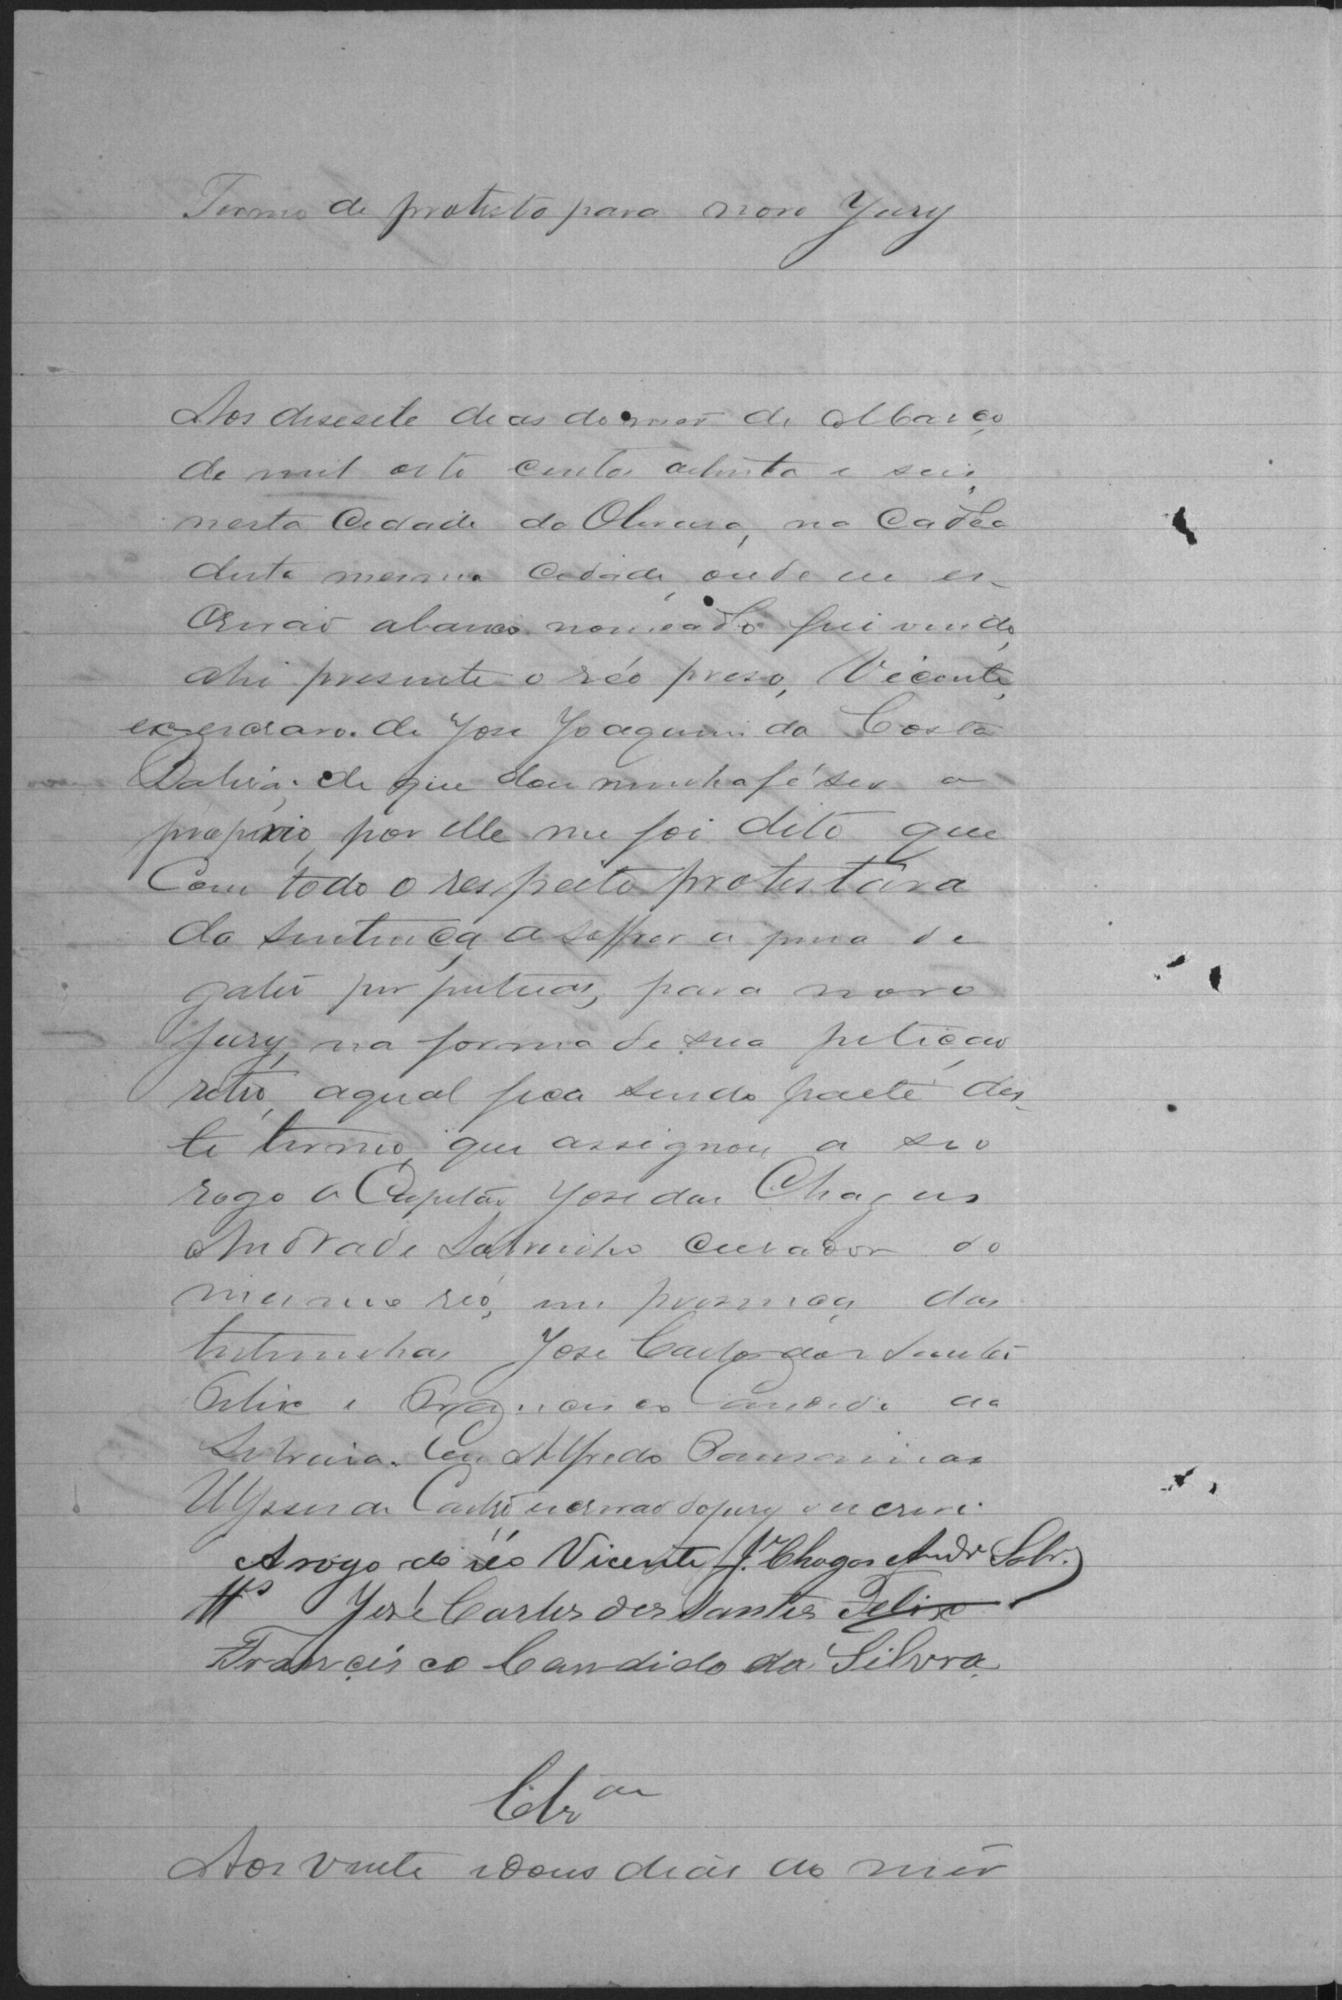 Termo de protesto para novo Jury
Aos desesete dias do mes de Março
de mil oito centos oitenta e seis,
nesta Cidade da Oliveira, na Cadêa
desta mesma Cidade, onde eu es-
crivão abaixo nomeado fui vindo,
ahi presente o réo preso, Vicente,
ex escravo de Jose Joaquim da Costa
de que dou minha fé ser o
proprio, por elle me foi dito que
Com todo o respeito protestava
da sentença a soffrer a pena de
galés perpetuas, para novo
Jury, na forma de sua petição
retro, aqual fica sendo parte des-
te termo, que assignou a seo
rogo o Capitão Jose das Chagas
Andrade Sobrinho curador do
mesmo réo, em presença das
testemunhas Jose Carlos dos Santos
Felix e Francisco Candido da
Silveira. Eu Alfredo
Ulysses de Castro escrivão do jury o escrevi.
A rogo do réo Vicente Je. Chagas Andre Sobr.
Ttas José Carlos dos Santos Felix
Francisco Candido da Silvera
Clsam
Aos vinte e dous dias do mês